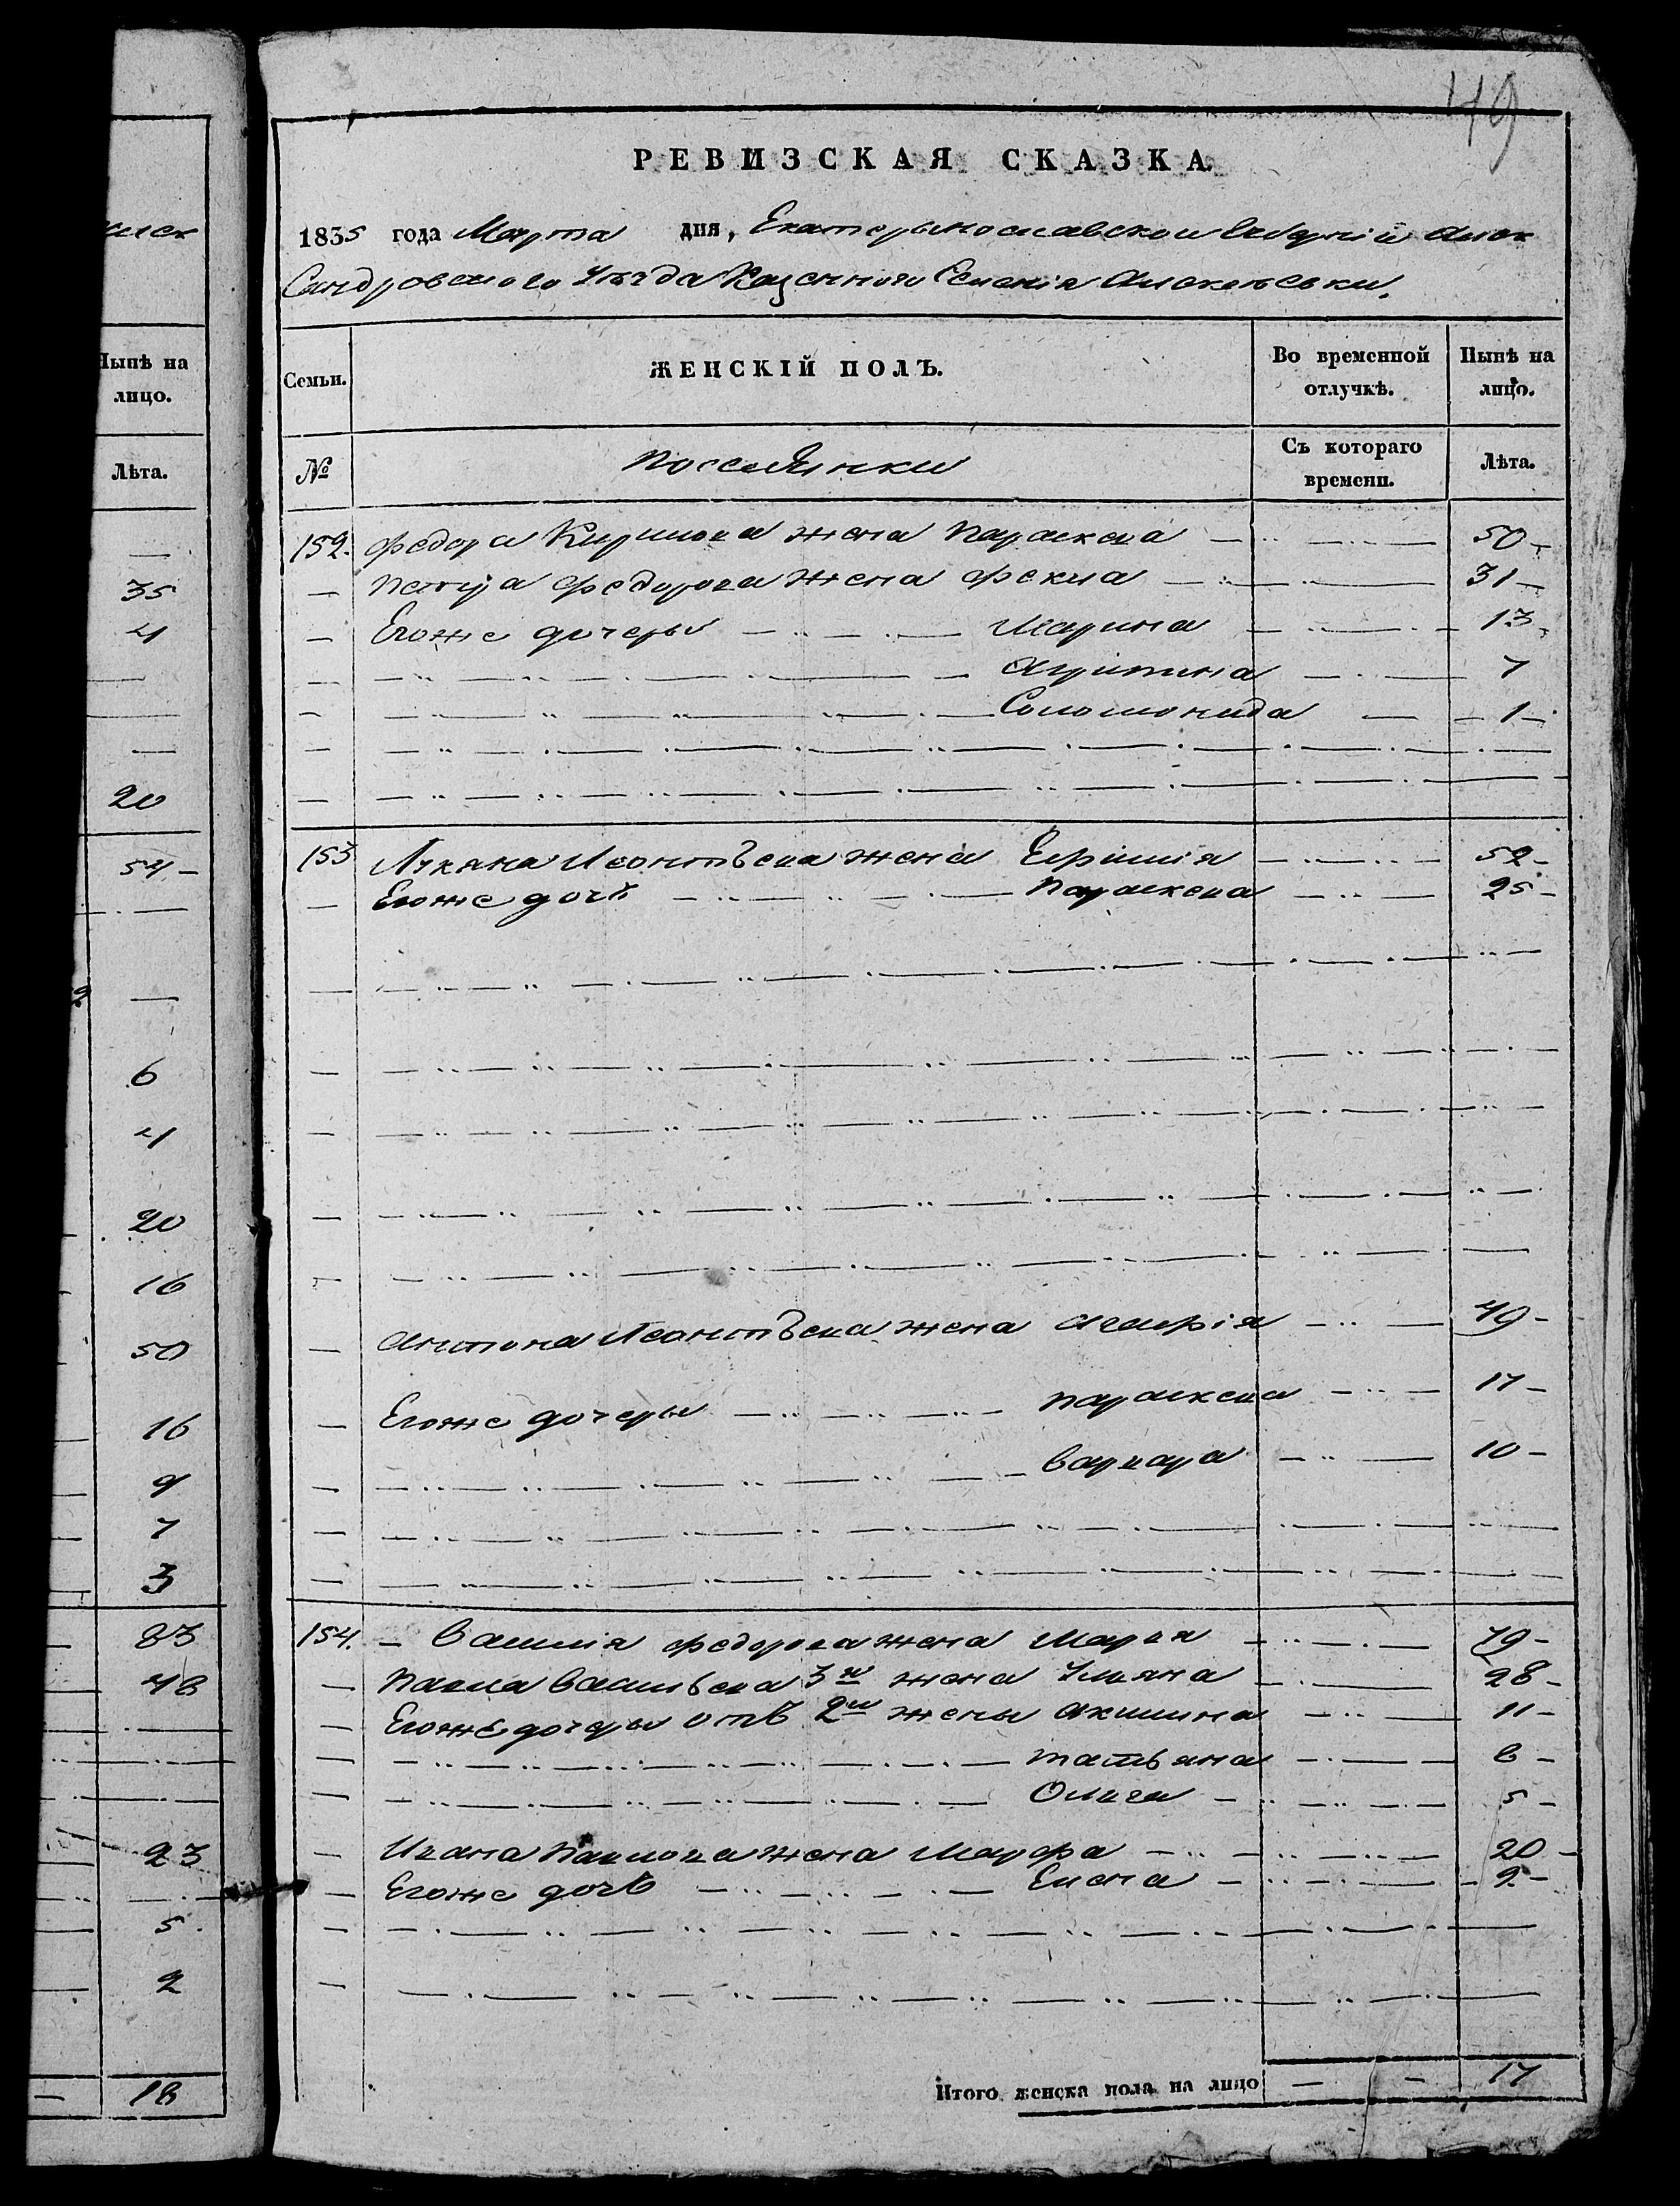 49
РЕВИЗСКАЯ СКАЗКА
1835 года Марта дня, Екатеринославской Губерніи Алек
Сандровского Уѣзда Казенного Селенія Алексѣевки.
Семьи. ЖЕНСКІЙ ПОЛЪ. Во временной отлучкѣ. Нынѣ на лицо.
№ Посселянки Съ котораго времени. Лѣта.
152. Федора Кирилова жена Параскева 50
Петра Федорова жена Фекла 31
Егоже дочеры Марина 13
Агрипина 7
Соломонида 1
153 Лукяна Леонтъева жена Ефимія 52
Егоже дочь Параскева 25
Антона Леонтъева жена Агафія 49
Егоже дочеры Параскева 17
Варвара 10
154. Василія Федорова жена Марья 79
Павла Васильева 3я жена Ульяна 28
Егоже дочеры отъ 2й жены Акилина 11
татьяна 6
Ольга 5
Ивана Павлова жена Марфа 20
Егоже дочь Елена 2
Итого женска пола на лицо 17
Нынѣ на
лицо.
Лѣта.
35
4
20
54
6
4
20
16
50
16
9
7
3
83
48
23
5
2
18